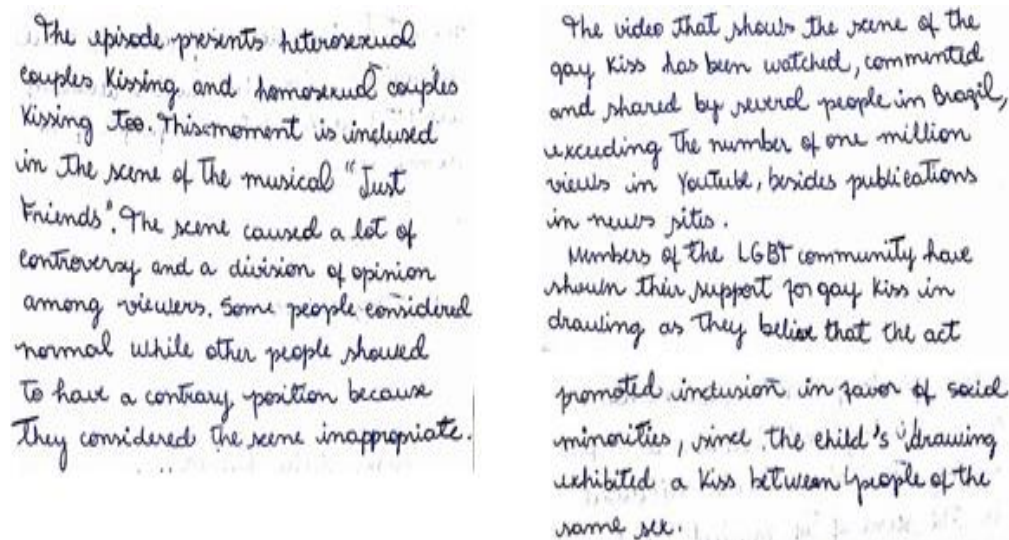 The episode presents heterosexual
couples kissing and homosexual couples
kissing too. This moment is inclused
in the scene of the musical "Just
Friends". The scene caused a lot of
controversy and a division of opinion
among viewers. Some people considered
normal while other people showed
to have a contrary position because
they considered the scene inappropriate.
The video that shows the scene of the
gay kiss has been watched, commented
and shared by several people in Brazil,
exceeding the number of one million
views in Youtube, besides publications
in news sites.
Members of the LGBT community have
shown their support for gay kiss in
drawing as they believe that the act
promoted inclusion in favor of social
minorities, since the child's drawing
exhibited a kiss between people of the
same sex.